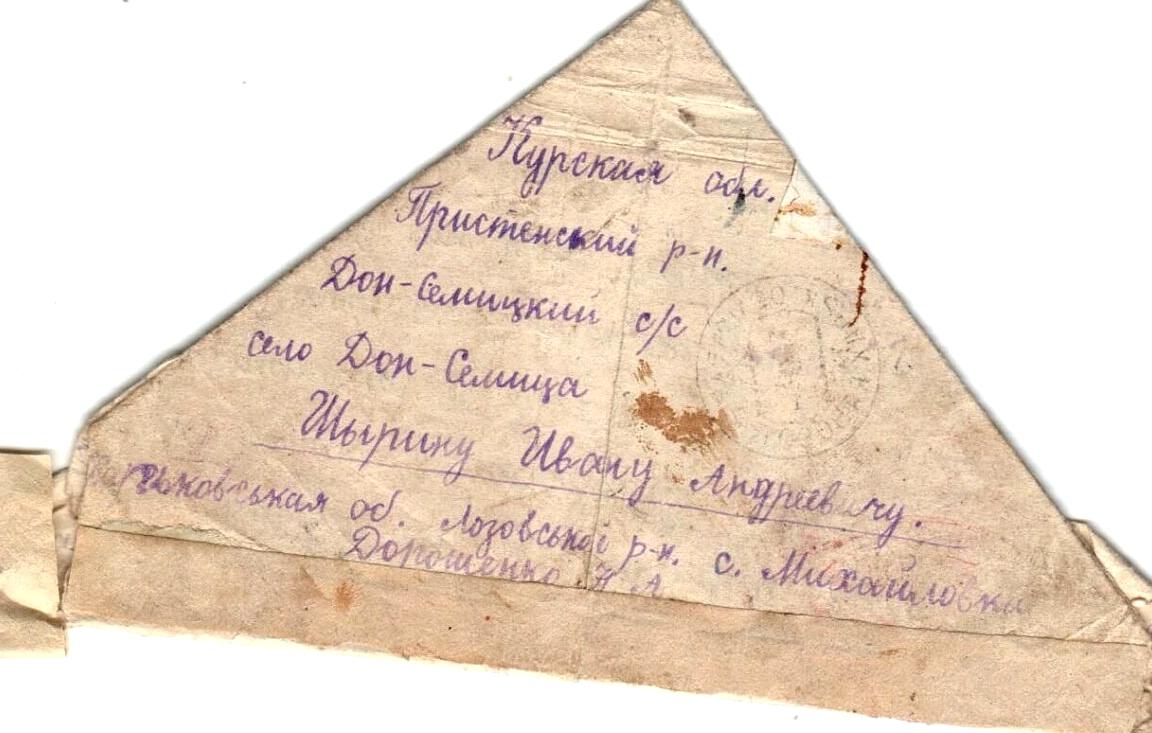 Курская обл.
Пристенский р-н.
Дон-Семицкий с/с
село Дон-Семица
Шырину Ивану Андреевичу.
Харьковськая об. Лозовської р-н. с. Михайловка
Дорошенко Н А